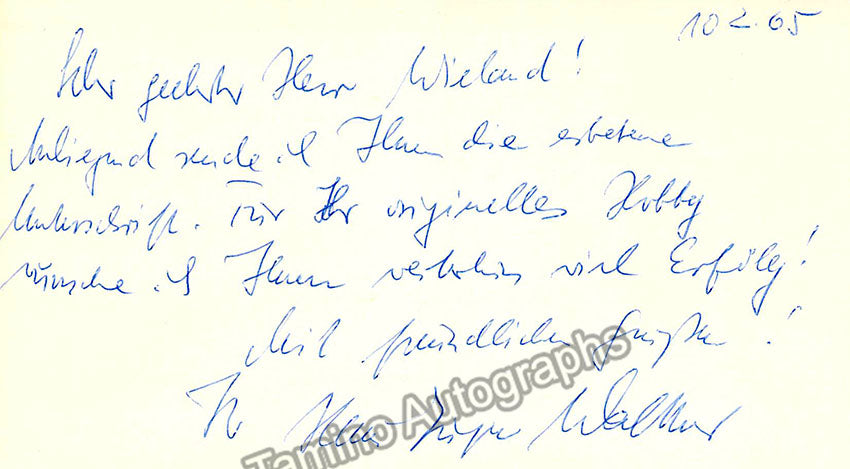 10 2. 65
Sehr geehrter Herr Wieland!
Anliegend sende ich Ihnen die erbetene
Unterschrift. Für Ihr originelles Hobby
wünsche ich Ihnen weiterhin viel Erfolg!
Mit freundlichen Grüßen!
Ihr Hans-Jürgen Walther
Tamino Autographs